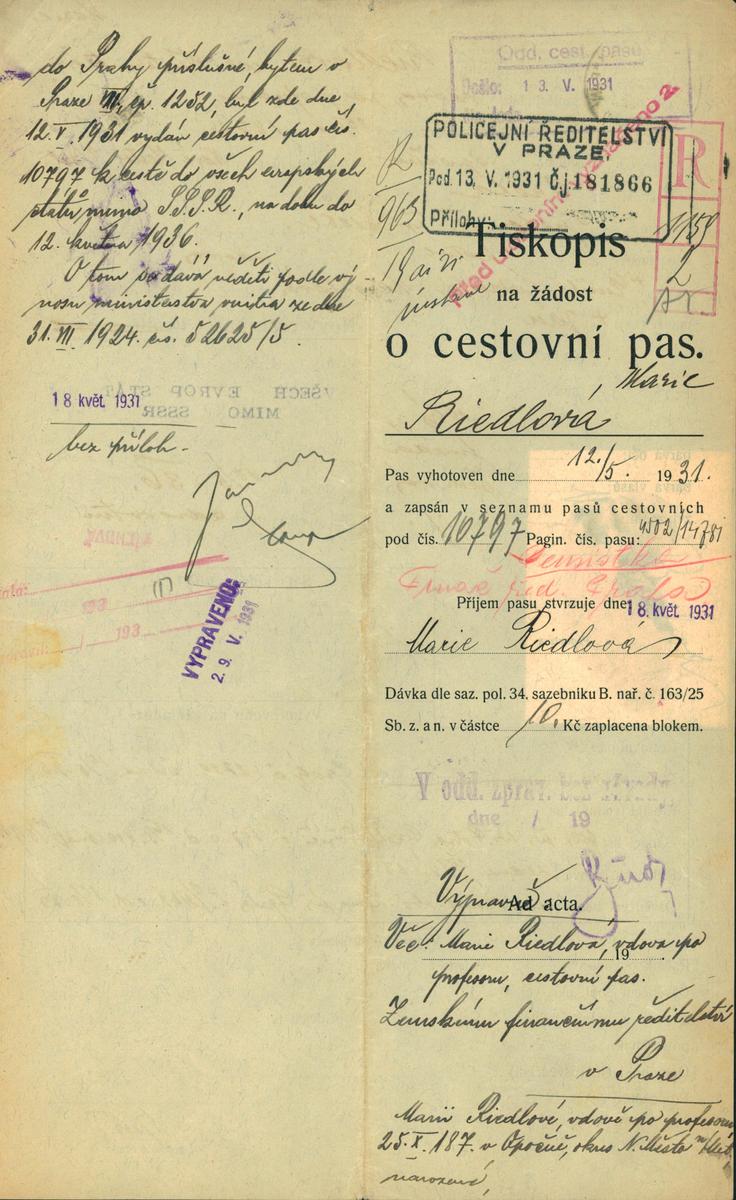 do Prahy příslušné, bytem v
Praze VII, čp. 1252, byl zde dne
12. V. 1931 vydán cestovní pas čís.
10797 k cestě do všech evropských
států mimo S.S.S.R., na dobu do
12. května 1936.
O tom se dává věděti podle vý
nosu ministerstva vnitra ze dne
31. III. 1924. čís. 52625/5.
18 květ. 1931
VŠECH EVROP STÁT
MIMO SSSR
bez příloh.
193
193
VYPRAVENO:
29. V. 1931
Odd. cest. pasů
Došlo: 13. V. 1931
POLICEJNÍ ŘEDITELSTVÍ
V PRAZE
Pod. 13. V. 1931 Čj 181866
Přílohy:
R
R
963
1159
2
Tiskopis
na žádost
o cestovní pas.
Marie
Riedlová
Pas vyhotoven dne 12./5. 1931.
a zapsán v seznamu pasů cestovních
pod čís. 10797 Pagin. čís. pasu:
Příjem pasu stvrzuje dne 18. květ. 1931
Marie Riedlová
Dávka dle saz. pol. 34. sazebníku B. nař. č. 163/25
Sb. z. a n. v částce 10. Kč zaplacena blokem.
V odd. zprav. bez závady,
dne / 19
Výprava:
Ad acta.
Věc: Marie Riedlová, vdova po
19
profesoru, cestovní pas.
Zemskému finančnímu ředitelství
v Praze
Marii Riedlové, vdově po profesoru,
25. X. 187. v Opočně, okres N. Město n/Met
narozené,